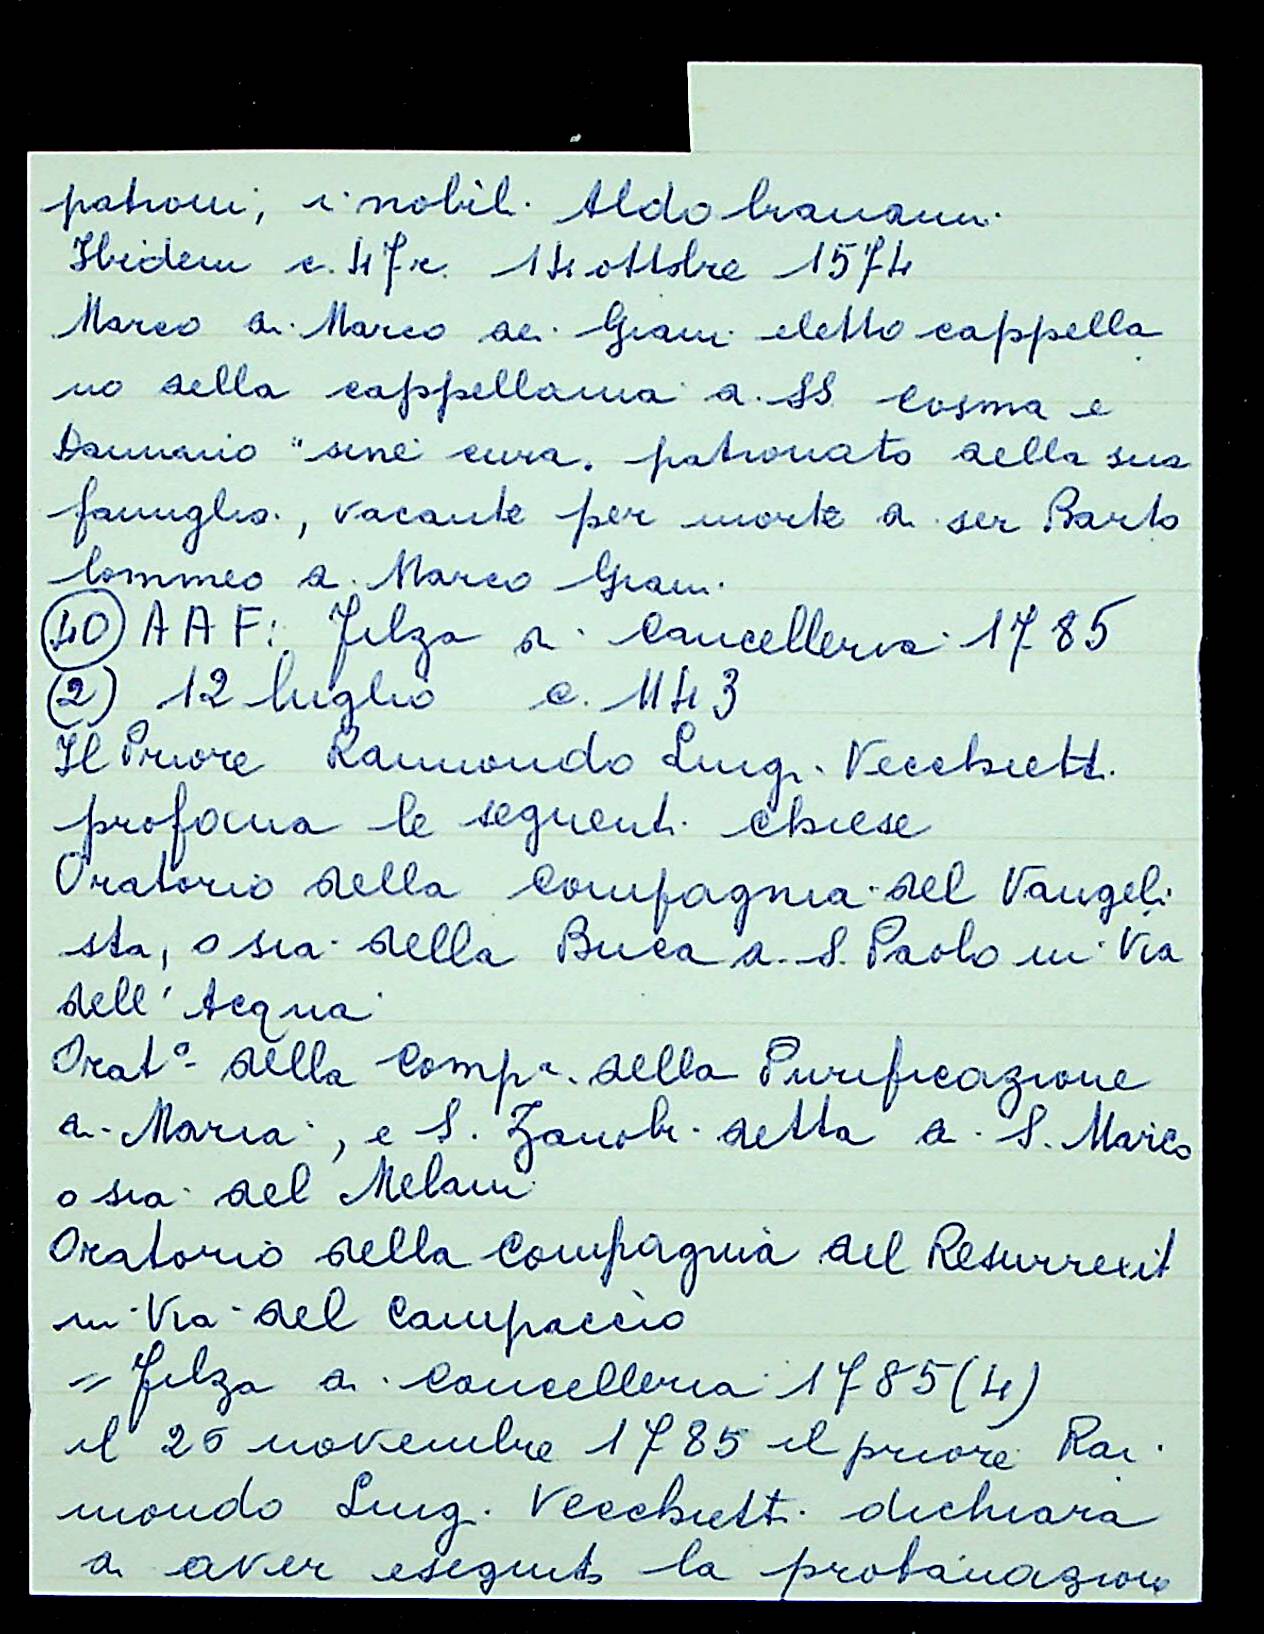 patroni, i nobili Aldobrandini
Ibidem c. 47r. 14 ottobre 1574
Marco di Marco dei Giani eletto cappella
no della cappellania di SS Cosma e
Damiano "sine cura" patronato della sua
famiglia, vacante per morte di ser Barto
lommeo di Marco Giani
(40) AAF: Filza di Cancelleria 1785
(2) 12 luglio c. 1143
Il Priore Raimondo Luigi Vecchietti
profana le seguenti chiese
Oratorio della Compagnia del Vangeli
sta, o sia della Buca di S. Paolo in Via
dell'Acqua
Orat° della Compa. della Purificazione
di Maria, e S. Zanobi detta di S. Marco
o sia del Melani
Oratorio della Compagnia del Resurrexit
in Via del Campaccio
= Filza di Cancelleria 1785 (4)
il 26 novembre 1785 il priore Rai
mondo Luigi Vecchietti dichiara
di aver eseguito la profanazione